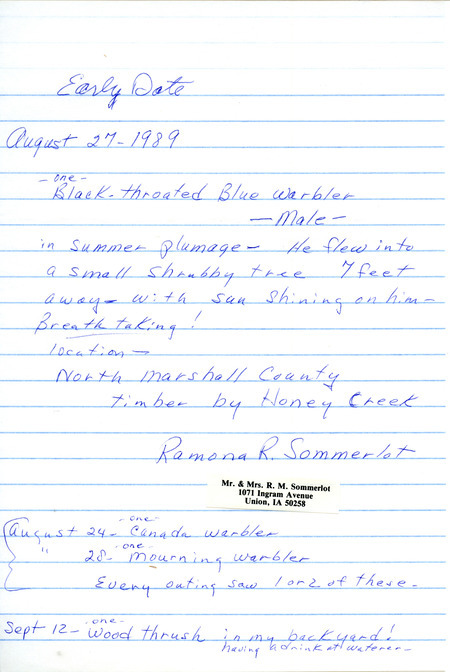 Early Date
August 27-1989
-one-
Black-throated Blue Warbler
-Male-
in summer plumage- He flew into
a small shrubby tree 7 feet
away- with sun shining on him-
Breathtaking!
location-
North Marshall County
timber by Honey Creek
Ramona R. Sommerlot
Mr. & Mrs. R. M. Sommerlot
1071 Ingram Avenue
Union, IA 50258
-one-
August 24- Canada warbler
-one-
" 28- Mourning warbler
Every outing saw 1 or 2 of these-
-one-
Sept 12- Wood thrush in my backyard!
having a drink at waterer-